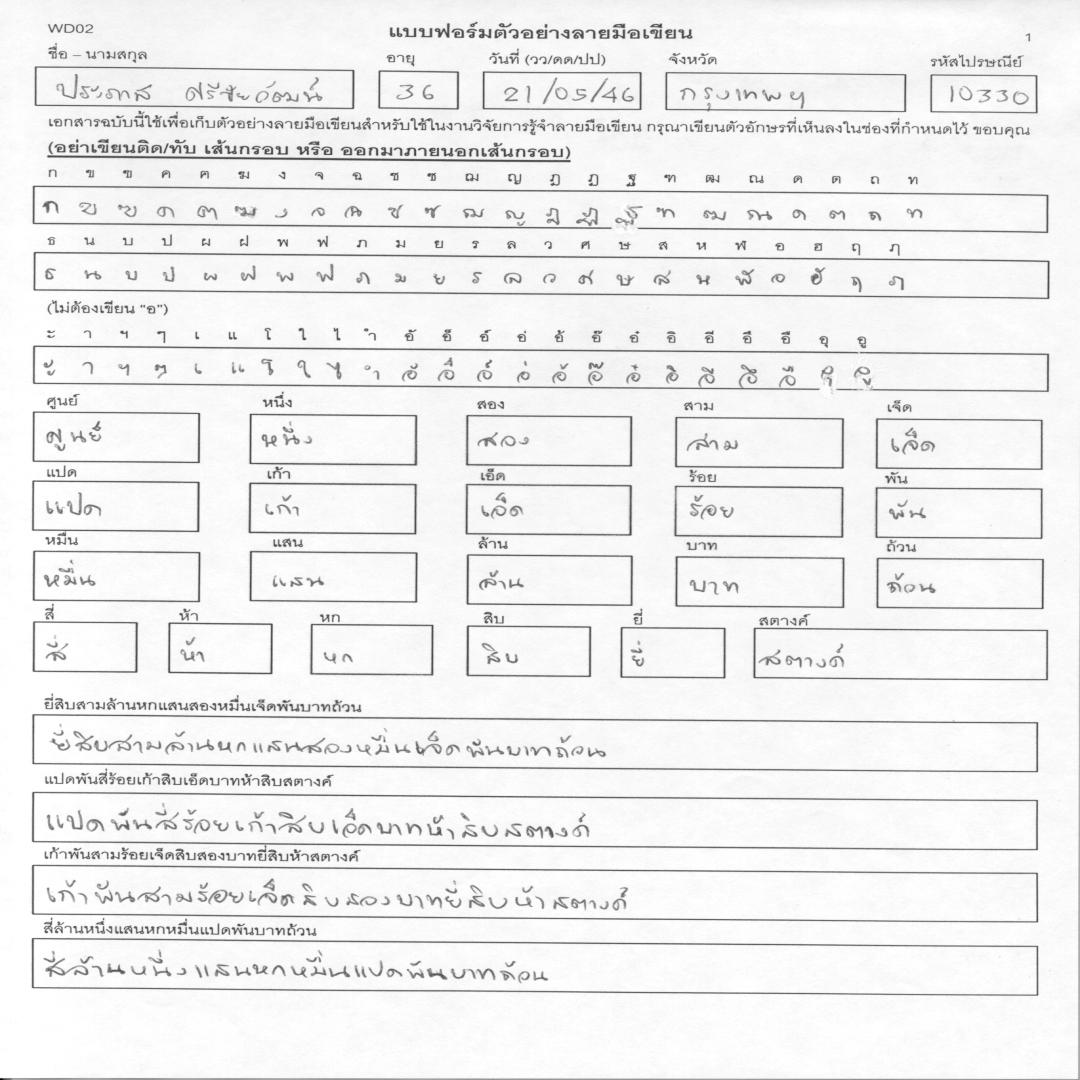 WD02 แบบฟอร์มตัวอย่างลายมือเขียน 1
ชื่อ – นามสกุล อายุ วันที่ (วว/ดด/ปป) จังหวัด รหัสไปรษณีย์
ประภาส ศรีชัยวัฒน์ 36 21/05/46 กรุงเทพฯ 10330
เอกสารฉบับนี้ใช้เพื่อเก็บตัวอย่างลายมือเขียนสำหรับใช้ในงานวิจัยการรู้จำลายมือเขียน กรุณาเขียนตัวอักษรที่เห็นลงในช่องที่กำหนดไว้ ขอบคุณ
(อย่าเขียนติด/ทับ เส้นกรอบ หรือ ออกมาภายนอกเส้นกรอบ)
ก ข ฃ ค ฅ ฆ ง จ ฉ ช ซ ฌ ญ ฎ ฏ ฐ ฑ ฒ ณ ด ต ถ ท
ก ข ฃ ค ฅ ฆ ง จ ฉ ช ซ ฌ ญ ฎ ฏ ฐ ฑ ฒ ณ ด ต ถ ท
ธ น บ ป ผ ฝ พ ฟ ภ ม ย ร ล ว ศ ษ ส ห ฬ อ ฮ ฤ ฦ
ธ น บ ป ผ ฝ พ ฟ ภ ม ย ร ล ว ศ ษ ส ห ฬ อ ฮ ฤ ฦ
(ไม่ต้องเขียน "อ")
ะ า ฯ ๆ เ แ โ ใ ไ ำ อั อ็ อ์ อ่ อ้ อ๊ อ๋ อิ อี อึ อื อุ อู
ะ า ฯ ๆ เ แ โ ใ ไ ำ อั อ็ อ์ อ่ อ้ อ๊ อ๋ อิ อี อึ อื อุ อู
ศูนย์ หนึ่ง สอง สาม เจ็ด
ศูนย์ หนึ่ง สอง สาม เจ็ด
แปด เก้า เอ็ด ร้อย พัน
แปด เก้า เอ็ด ร้อย พัน
หมื่น แสน ล้าน บาท ถ้วน
หมื่น แสน ล้าน บาท ถ้วน
สี่ ห้า หก สิบ ยี่ สตางค์
สี่ ห้า หก สิบ ยี่ สตางค์
ยี่สิบสามล้านหกแสนสองหมื่นเจ็ดพันบาทถ้วน
ยี่สิบสามล้านหกแสนสองหมื่นเจ็ดพันบาทถ้วน
แปดพันสี่ร้อยเก้าสิบเอ็ดบาทห้าสิบสตางค์
แปดพันสี่ร้อยเก้าสิบเอ็ดบาทห้าสิบสตางค์
เก้าพันสามร้อยเจ็ดสิบสองบาทยี่สิบห้าสตางค์
เก้าพันสามร้อยเจ็ดสิบสองบาทยี่สิบห้าสตางค์
สี่ล้านหนึ่งแสนหกหมื่นแปดพันบาทถ้วน
สี่ล้านหนึ่งแสนหกหมื่นแปดพันบาทถ้วน